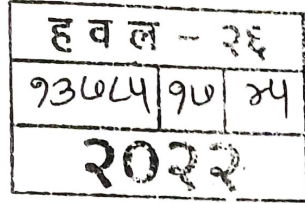 ह व ल - २६
१३७८५ १७ २५
२०२२